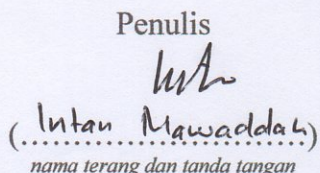 Penulis
(Intan Mawaddah)
nama terang dan tanda tangan